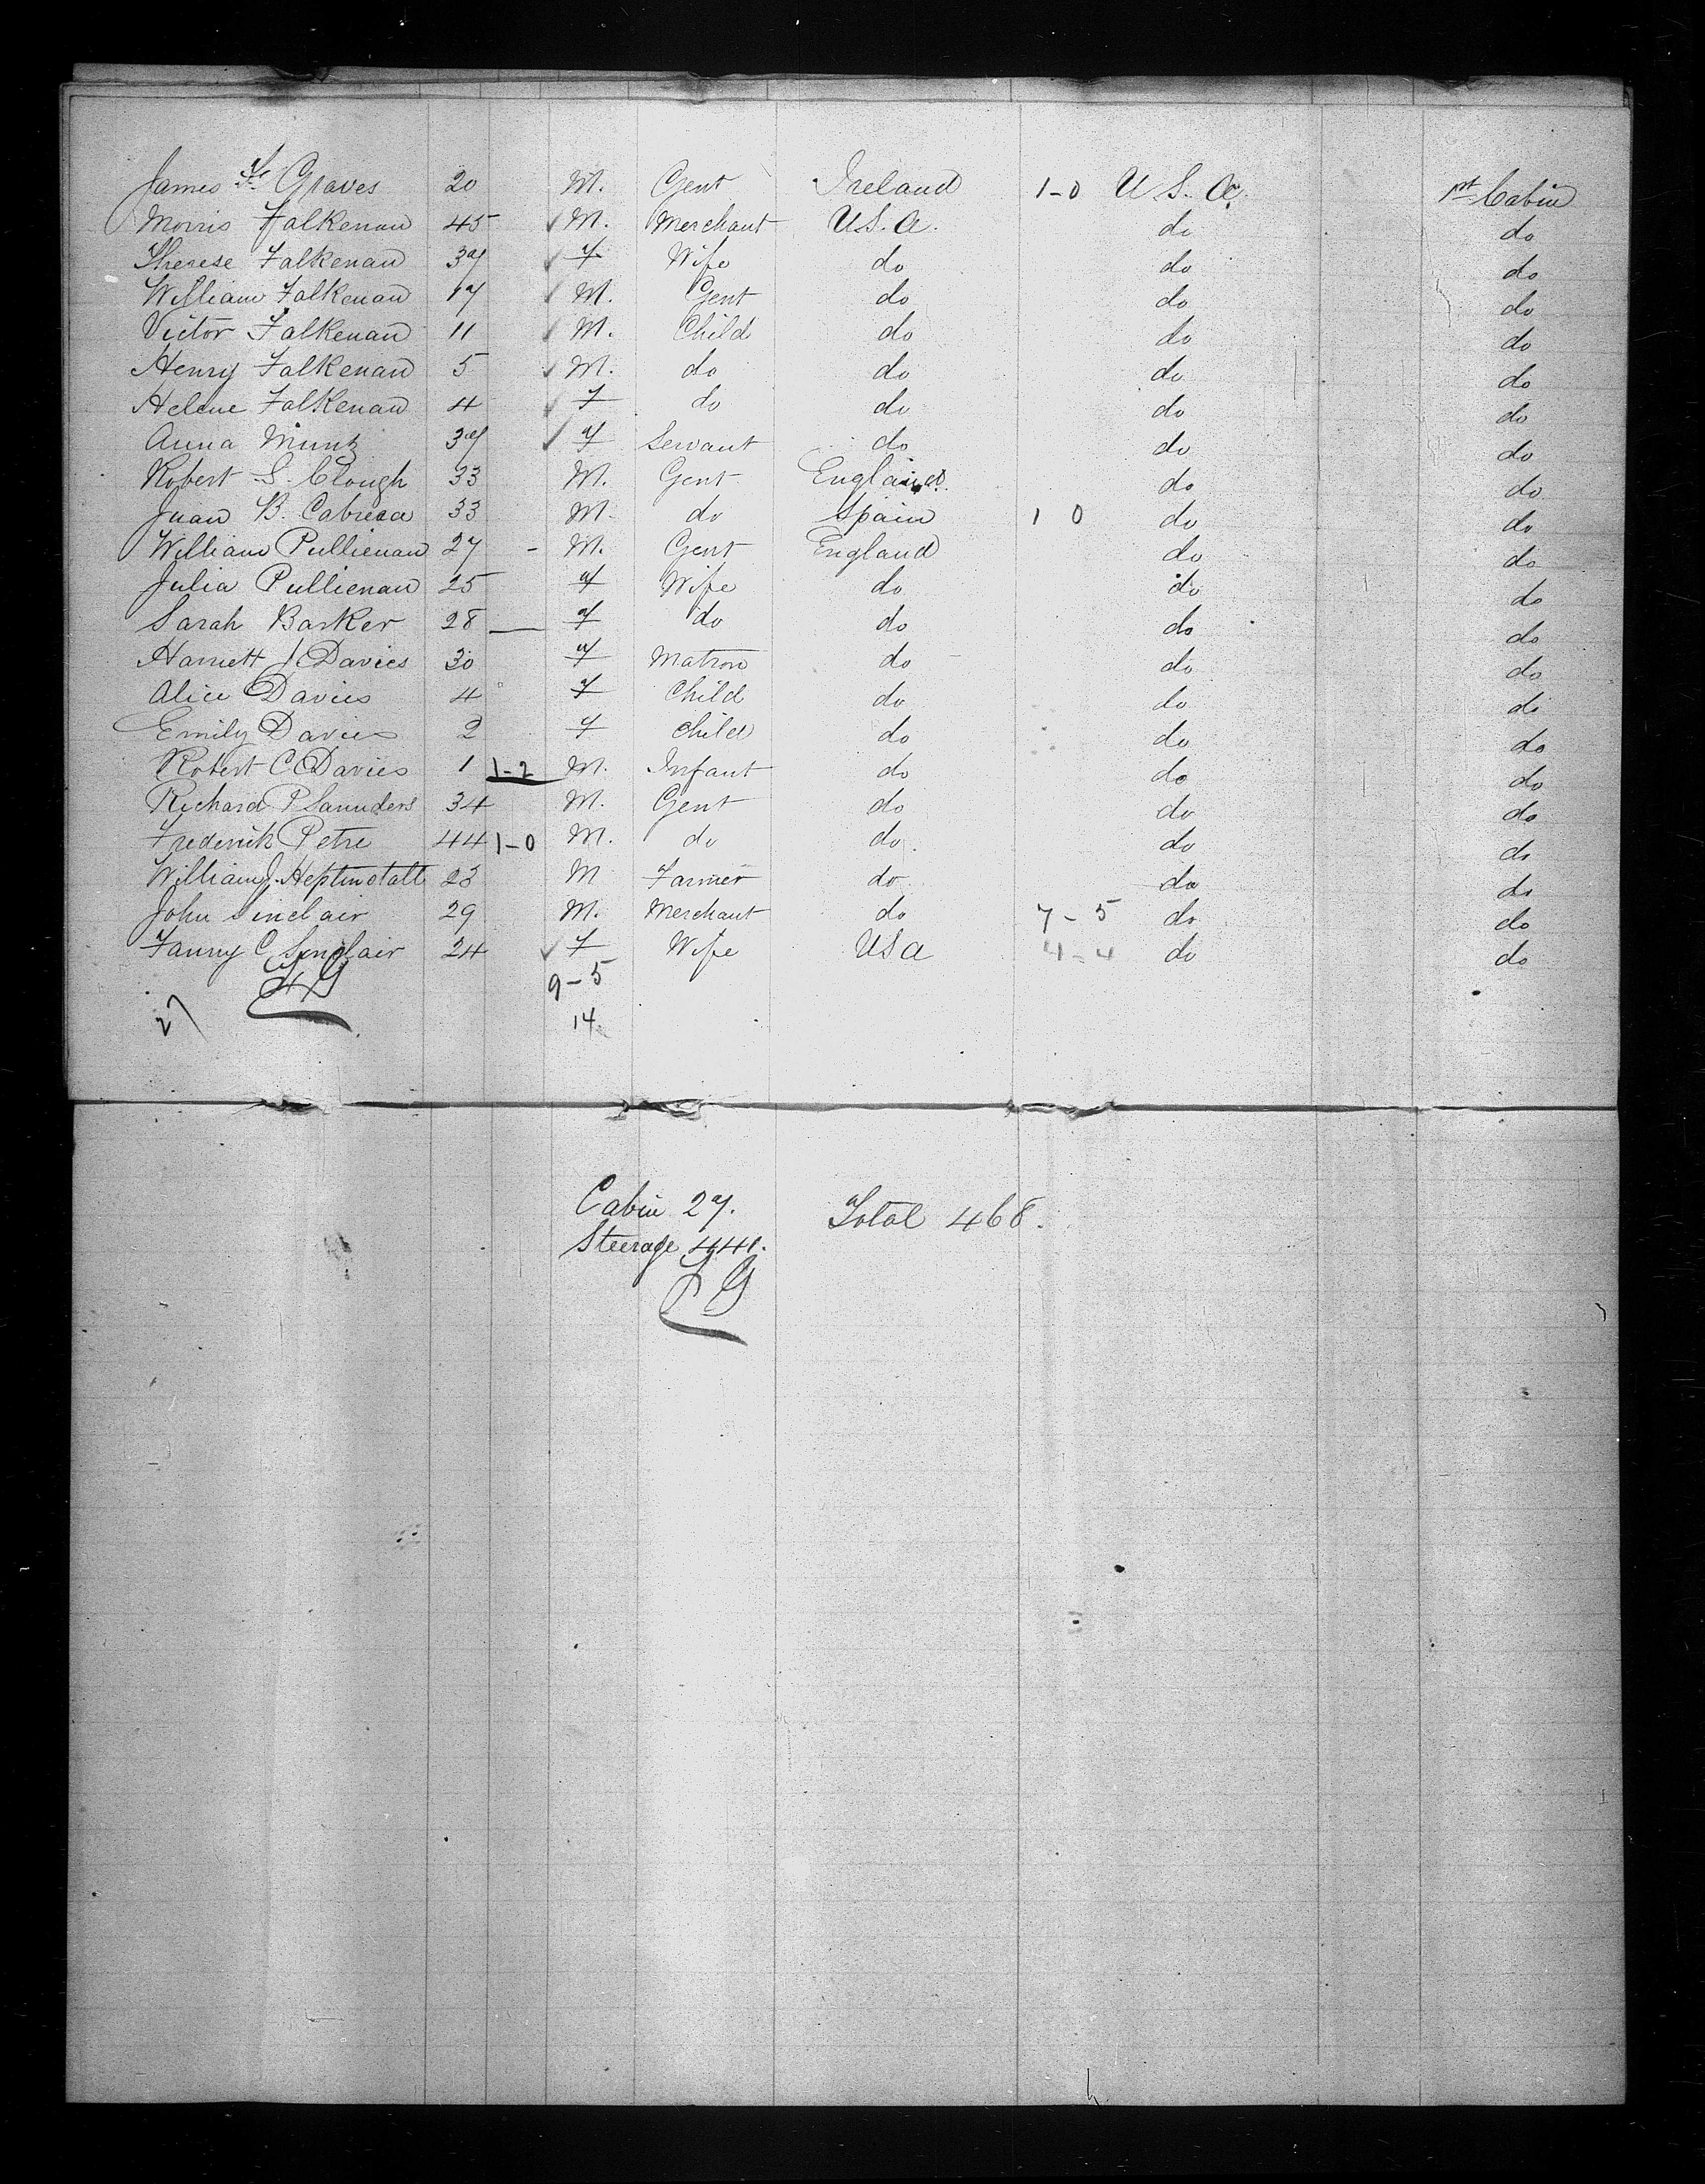 James Graves 20 M. Gent Ireland 1-0 U.S.A. 1st Cabin
Morris Falkenau 45 ✓ M. Merchant U.S.A. do do
Therese Falkenau 37 ✓ F Wife do do do
William Falkenau 17 ✓ M. Gent do do do
Victor Falkenau 11 ✓ M. Child do do do
Henry Falkenau 5 ✓ M. do do do do
Helene Falkenau 4 ✓ F do do do do
Anna Muntz 37 ✓ F Servant do do do
Robert S. Clough 33 M. Gent England do do
Juan B. Cabrera 33 M. do Spain 1 0 do do
William Pullienau 27 - M. Gent England do do
Julia Pullienau 25 F Wife do do do
Sarah Barker 28 — F do do do do
Harriett J Davies 30 F Matron do do do
Alice Davies 4 F Child do do do
Emily Davies 2 F Child do do do
Robert C Davies 1 1-2 M. Infant do do do
Richard P Saunders 34 M. Gent do do do
Frederick Petre 44 1-0 M. do do do do
William J. Heptinstall 23 M Farmer do do do
John Sinclair 29 M. Merchant do 7-5 do do
Fanny C Sinclair 24 ✓ F Wife USA 4-4 do do
9-5
27 14
Cabin 27. Total 468.
Steerage 441.